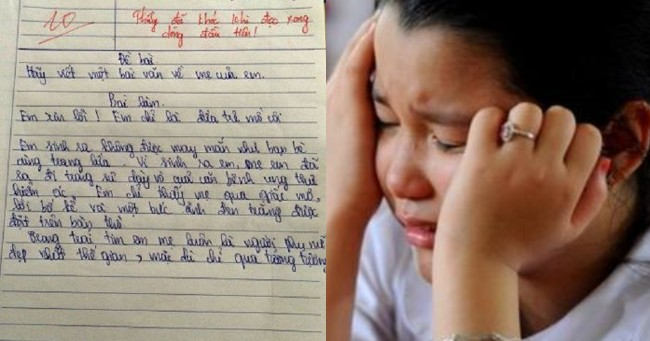 10
Thầy đã khóc khi đọc xong
dòng đầu tiên!
Đề bài
Hãy viết một bài văn về mẹ của em.
Bài làm
Em xin lỗi! Em chỉ là đứa trẻ mồ côi
Em sinh ra không được may mắn như bạn bè
cùng trang lứa. Vì sinh ra em, mẹ em đã
ra đi trong sự dày vò của căn bệnh ung thư
hiểm ác. Em chỉ thấy mẹ qua giấc mơ,
lời bố kể và một bức ảnh đen trắng được
đặt trên bàn thờ
Trong trái tim em mẹ luôn là người phụ nữ
đẹp nhất thế gian, mặc dù chỉ qua tưởng tượng